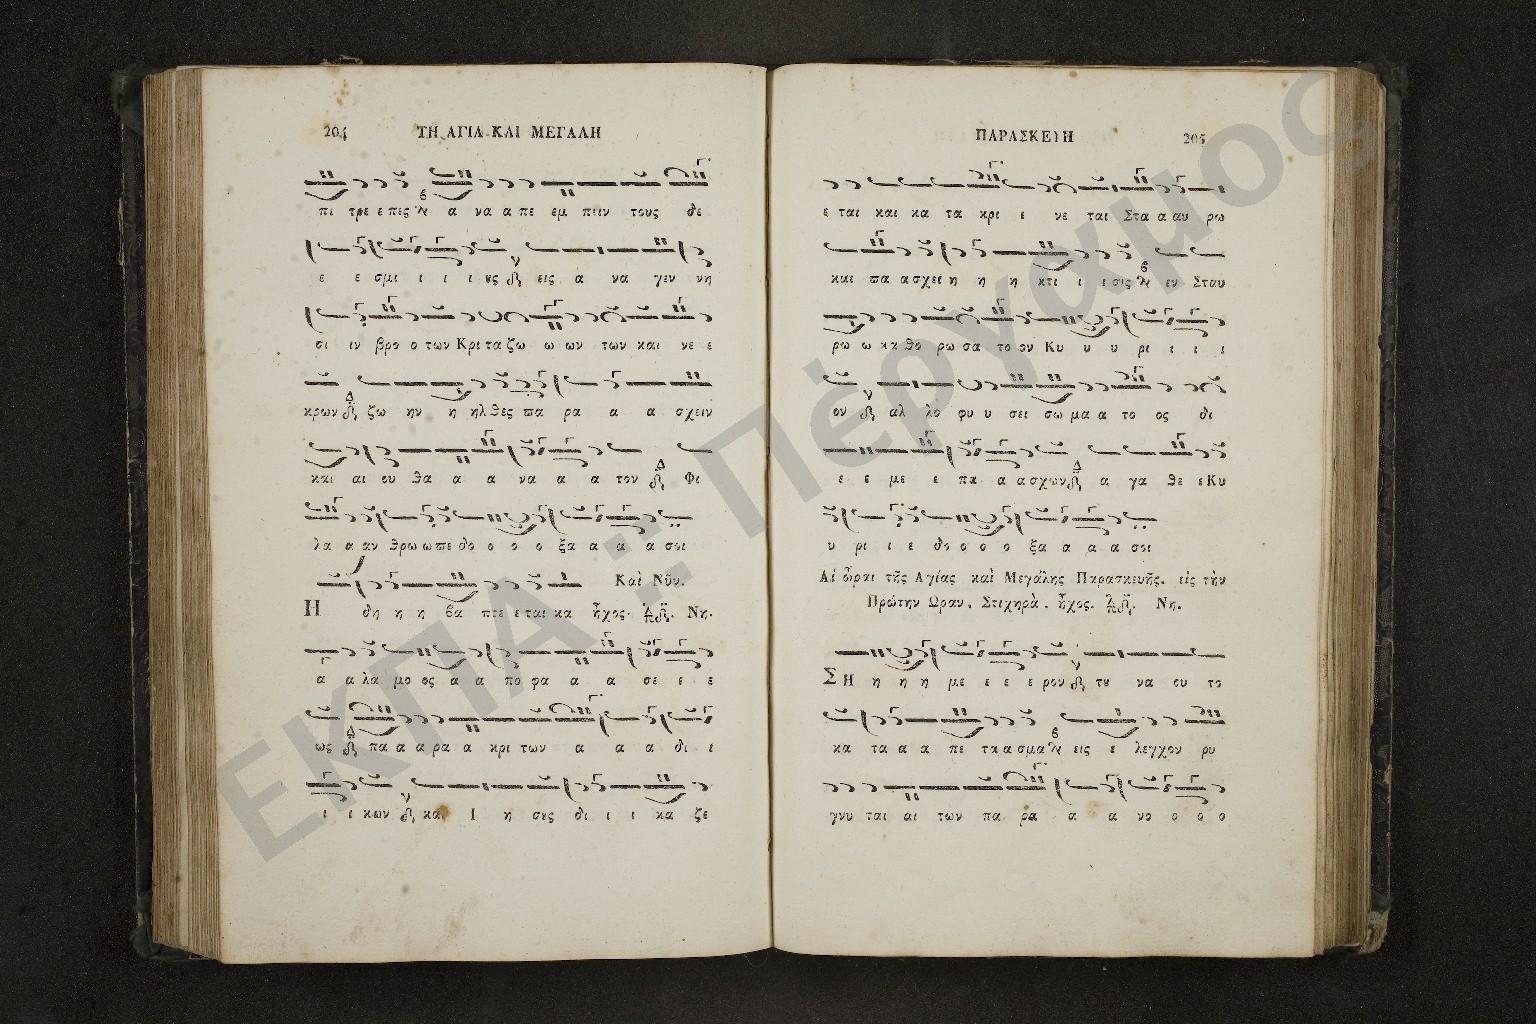 204 ΤΗ ΑΓΙΑ ΚΑΙ ΜΕΓΑΛΗ
πι τρε ε πες α να α πε εμ πειν τους δε
ε ε σμι ι ι ι ȣς εις α να γεν νη
σι ιν βρο ο των Κρι τα ζω ω ων των και νε ε
κρων ζω ην η ηλ θες πα ρα α α σχειν
και αι ου θα α α να α α τον Φι
λα α αν θρω ω πε δο ο ο ο ξα α α α α σοι
Καὶ Νῦν.
Η δη η η βα πτε ε ται κα ἦχος. Νη.
α α λα μο ος α α πο φα α α σε ε ε
ως πα α α ρα α κρι των α α α δι ι
ι ι κων κα Ι η σȣς δι ι ι κα ζε
ΠΑΡΑΣΚΕΥΗ 205
ε ται και κα τα κρι ι νε ται Στα α αυ ρω
και πα α σχει η η η κτι ι ι σις εν Σταυ
ρω ω κα θο ρω σα το ον Κυ υ υ ρι ι ι ι
ον αλ λο φυ υ σει σω μα α το ος δι
ε ε με ε πα α α σχων α γα θε ε Κυ
υ ρι ι ε δο ο ο ο ξα α α α σοι
Αἱ ὧραι τῆς Αγίας καὶ Μεγάλης Παρασκευῆς. εἰς τὴν
Πρώτην Ωραν. Στιχηρὰ. ἦχος. Νη.
ΣΗ η η η με ε ε ε ρον τȣ να ου το
κα τα α α πε τα α σμα εις ε λεγχον ρυ
γνυ ται αι των πα ρα α α νο ο ο ο
ΕΚΠΑ :: Πέργαμος